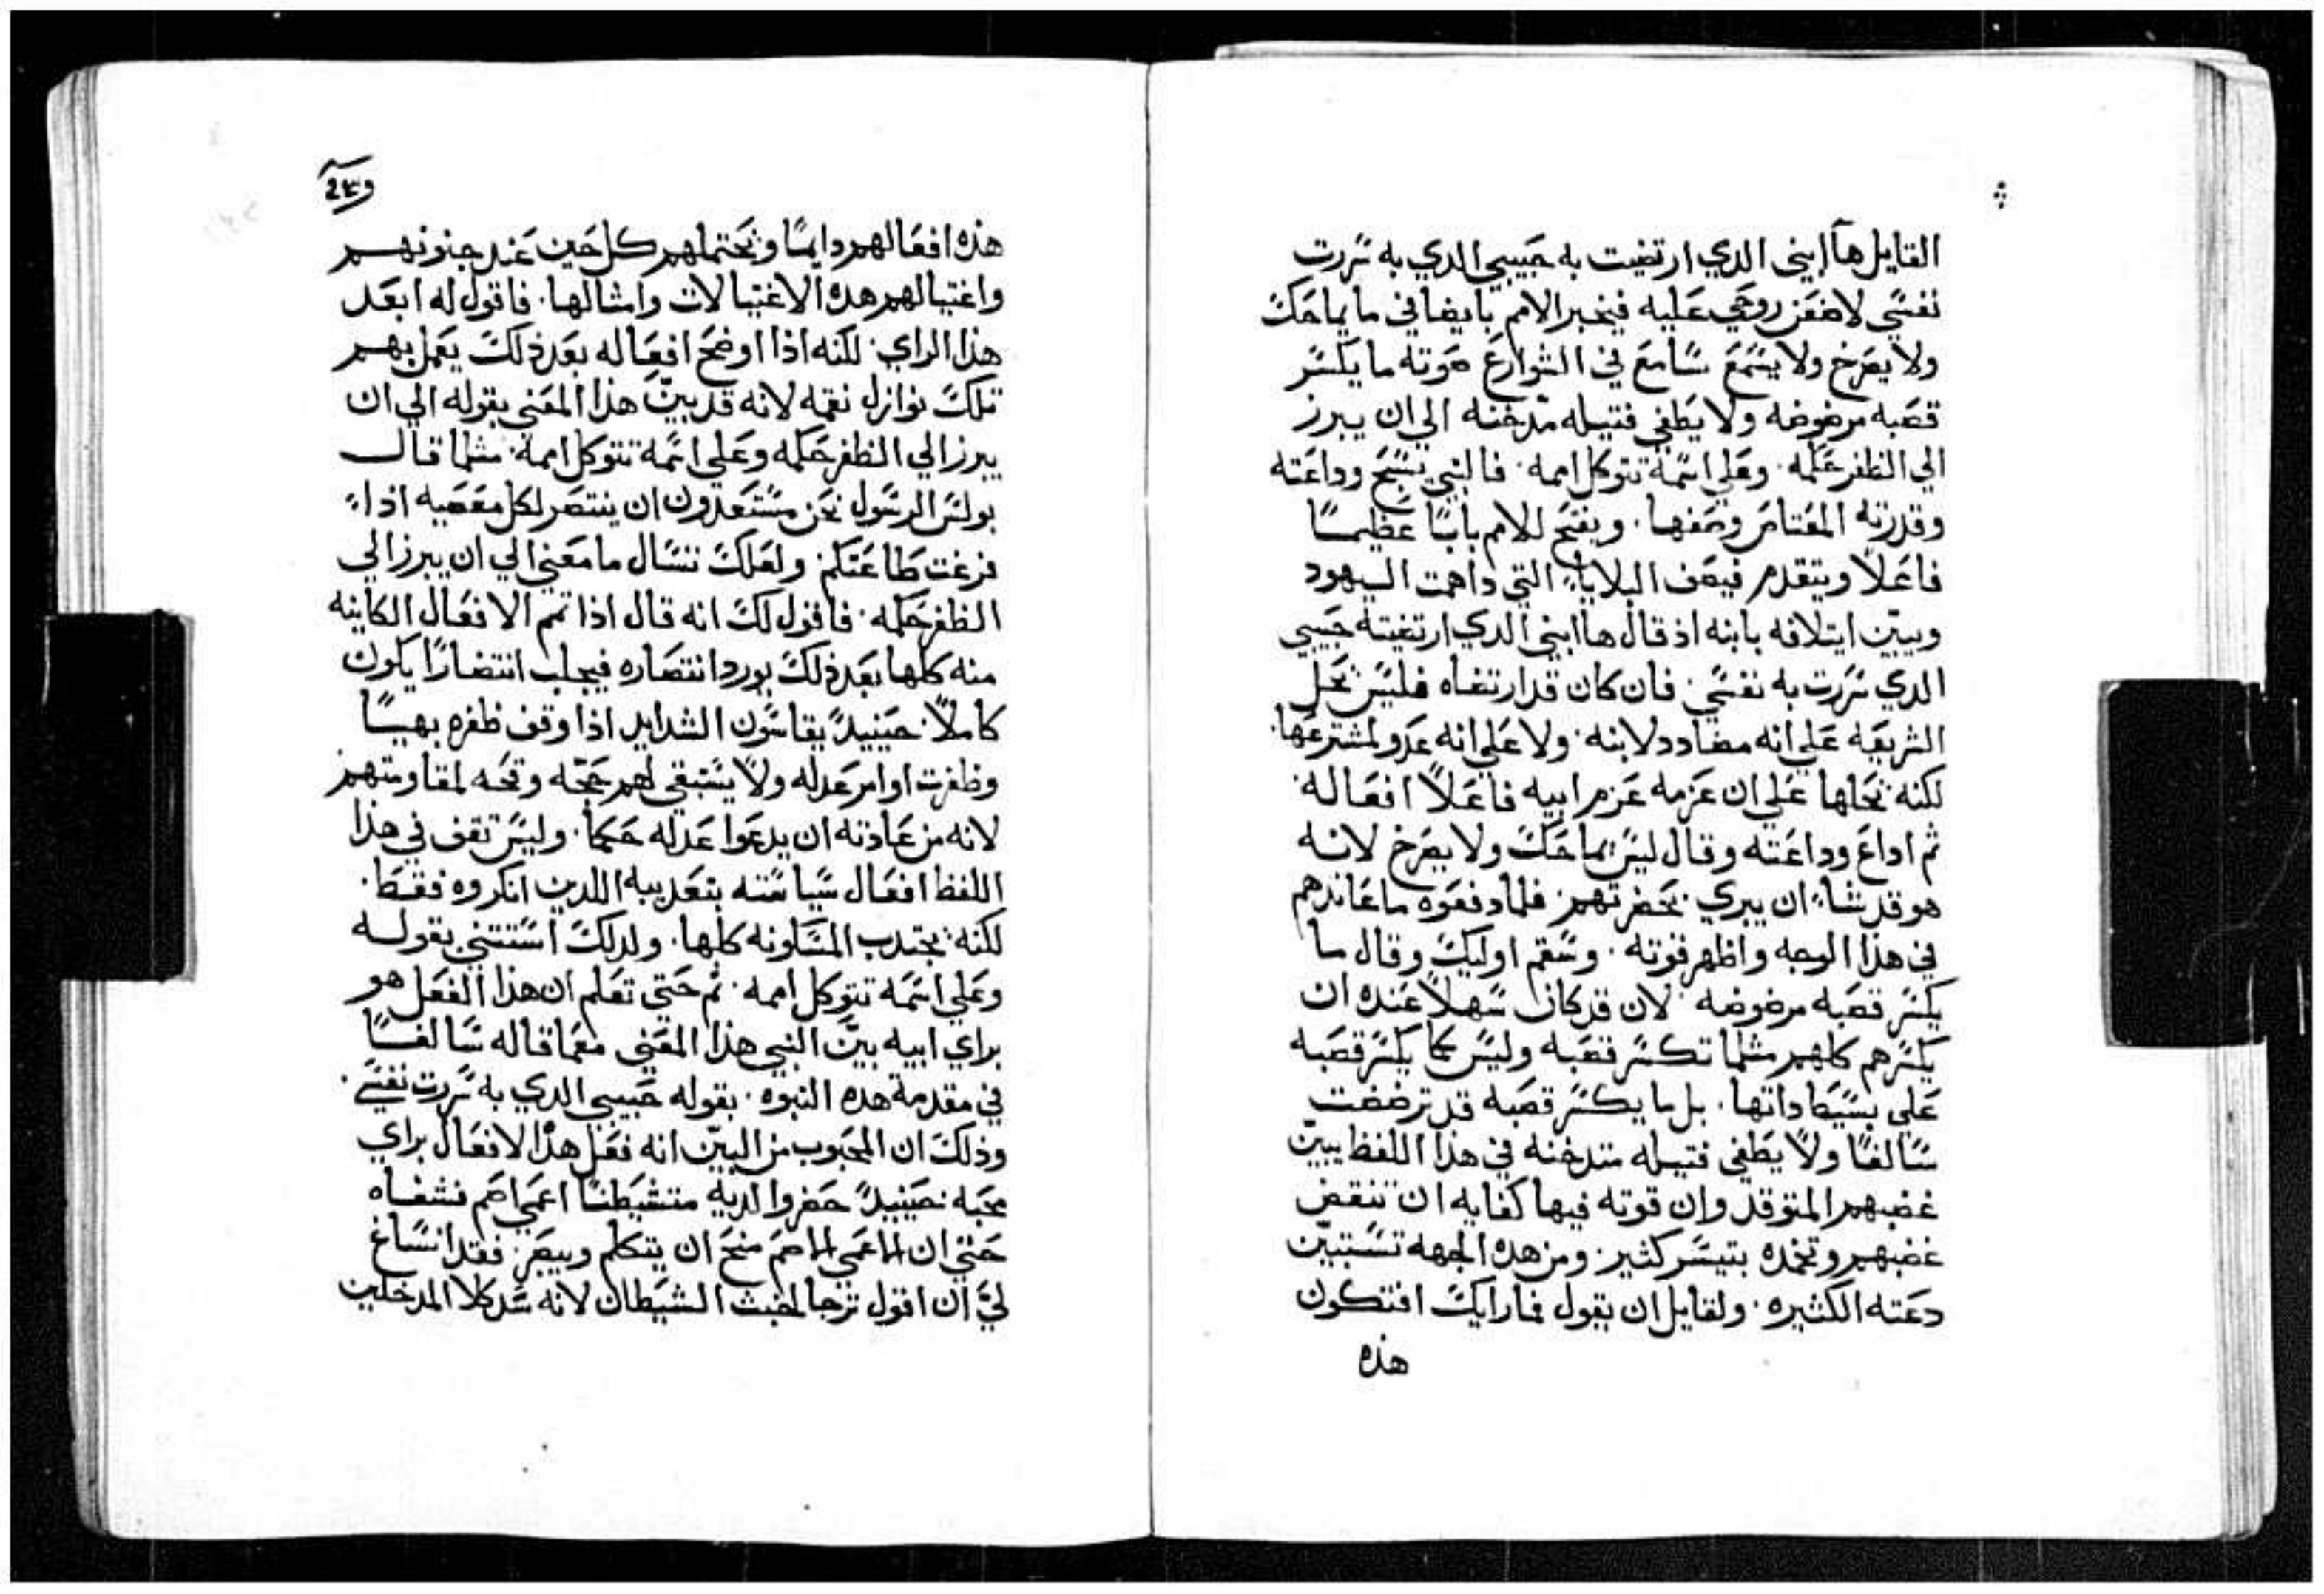 القايل هآ ابني الدي ارتضيت به حبيبي الدي به سررت
نفسي لاضعن روحي عليه فيخبر الامم بايضا في ما يماحك
ولا يصرخ ولا يسمع سامع في الشوارع صوته ما يكسر
قصبه مرضوضه ولا يطفي فتيله مدخنه الي ان يبرز
الي الظفر حكمه. وعلي اسمه تتوكل امم. فالنبي يسبح وداعته
وقدرته المعتاص وصفها. ويفتح للامم بابًا عظيمًا
فاعلًا ويتقدم فيصف البلايا التي داهمت اليهود
ويبيّن ايتلافه بابنه اذ قال ها ابني الدي ارتضيته حبيبي
الدي سررت به نفسي. فان كان قد ارتضاه فليس يحل
الشريعه علي انه مضادد لابنه. ولا علي انه عدو لمشترعها.
لكنه يحلها علي ان عزمه عزم ابيه فاعلًا افعاله.
ثم اداع وداعته وقال ليس يماحك ولا يصرخ لانه
هو قد شاء ان يبري بحضرتهم. فلما دفعوه ما عاندهم
في هذا الوجه واظهر قوته. وسقم اوليك وقال ما
يكسر قصبه مرضوضه لان قد كان سهلًا عنده ان
يكسرهم كلهم مثلما تكسر قصبه وليس كما يكسر قصبه
علي بسيط داتها. بل ما يكسر قصبه قد ترضضت
سالفًا ولا يطفي فتيله متدخنه في هذا اللفظ يبيّن
غضبهم المتوقد وان قوته فيها كفايه ان تنقض
غضبهم وتخمده بتيسر كثير. ومن هده الجهه تستبيّن
دعته الكثيره. ولقايل ان يقول فما رايك افتكون
هذه
هذه افعالهم دايمًا ويحتملهم كل حين عند جنونهم
واغتيالهم هده الاغتيالات وامثالها. فاقول له ابعد
هذا الراي. لكنه اذا اوضح افعاله بعد ذلك يعمل بهم
تلك نوازل نقمه لانه قد بيّن هذا المعني بقوله الي ان
يبرز الي الظفر حكمه وعلي اسمه تتوكل امم. مثلما قال
بولس الرسول نحن مستعدون ان ينتصر لكل معصيه اذا
فرغت طاعتكم ولعلك تسال ما معني الي ان يبرز الي
الظفر حكمه. فاقول لك انه قال اذا تمم الافعال الكاينه
منه كلها بعد ذلك يورد انتصاره فيجلب انتصارًا يكون
كاملًا. حينيدً يقاسون الشدايد اذا وقف ظفره بهيًا
وظفرت اوامر عدله ولا يستبقي لهم حجّه وقحه لمقاومتهم
لانه من عادته ان يدعوا عدله حكمًا. وليس تقف في هذا
اللفظ افعال سياسته بتعديبه اللدين انكروه فقط.
لكنه يجتدب المسكونه كلها. ولدلك استثني بقوله
وعلي اسمه تتوكل امم. ثم حتي تعلم ان هذا الفعل هو
براي ابيه بيّن النبي هذا المعني معما قاله سالفًا
في مقدمة هده النبوه. بقوله حبيبي الدي به سررت نفسي.
وذلك ان المحبوب من البيّن انه فعل هذا الافعال براي
محبه حينيدً حضروا اليه متشيطنًا اعمي اصم فشفاه
حتي ان الاعمي الاصم منح ان يتكلم ويبصر. فقد انساغ
ليَ ان اقول ترحا لخبث الشيطان لانه سد كلا المدخلين